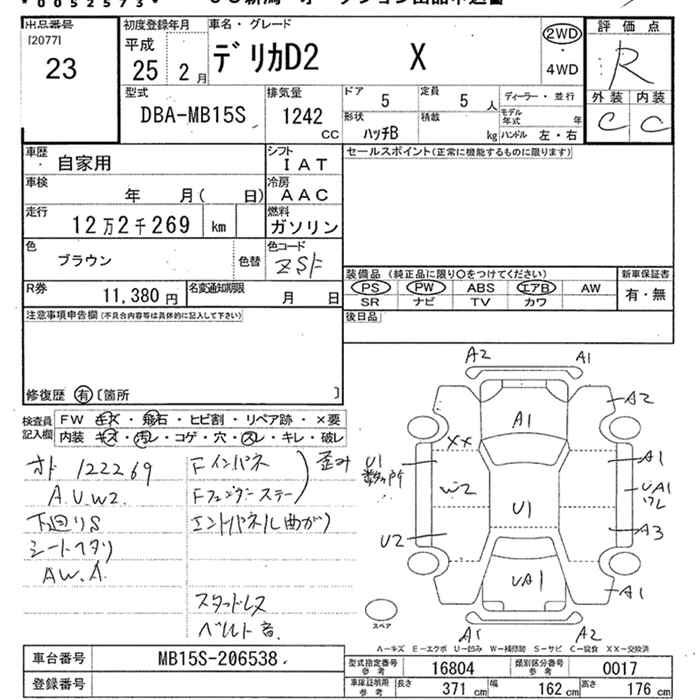 *0052573*
出品番号
[2077]
23
初度登録年月
平成
25 2月
車名・グレード
デリカD2 X
2WD
・
4WD
評価点
R
外装 内装
C C
型式
DBA-MB15S
排気量
1242
CC
ドア 5
定員 5 人
ディーラー・並行
形状
ハッチB
積載
kg
モデル年式 年
ハンドル 左・右
車歴
自家用
シフト
IAT
セールスポイント(正常に機能するものに限ります)
車検
年 月( 日)
冷房
AAC
走行
12万2千269 km
燃料
ガソリン
色
ブラウン
色替
色コード
ZSF
装備品 (純正品に限り○をつけてください)
新車保証書
PS PW ABS エアB AW
SR ナビ TV カワ
有・無
R券
11,380 円
名変通知期限
月 日
注意事項申告欄(不具合内容等は具体的に記入して下さい)
後日品
修復歴 有 〔箇所 〕
検査員記入欄
FW キズ・飛石・ヒビ割・リペア跡・×要
内装 キズ・汚レ・コゲ・穴・スレ・キレ・破レ
オド 122269
A.U.W2.
下回りS
シートヘタリ
AW.A
Fインパネ
Fフェンダーステー
歪み
エンドパネル曲がり
スタッドレス
ベルト音.
A2 A1
A2
A1
XX
A1
U1
数ヶ所
W2
UA1
ワレ
U1
U2
A3
UA1
A1
A1 A2
スペア
A-キズ E-エクボ U-凹み W-補修跡 S-サビ C-腐食 XX-交換済
車台番号 MB15S-206538.
登録番号
型式指定番号
参考
16804
類別区分番号
参考
0017
車庫証明用
参考
長さ 371 cm
幅 162 cm
高さ 176 cm